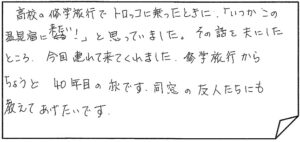 高校の修学旅行でトロッコに乗ったときに、「いつかこの
温泉宿に来たい!」と思っていました。その話を夫にした
ところ、今回連れて来てくれました。修学旅行から
ちょうど40年目の秋です。同窓の友人たちにも
教えてあげたいです。